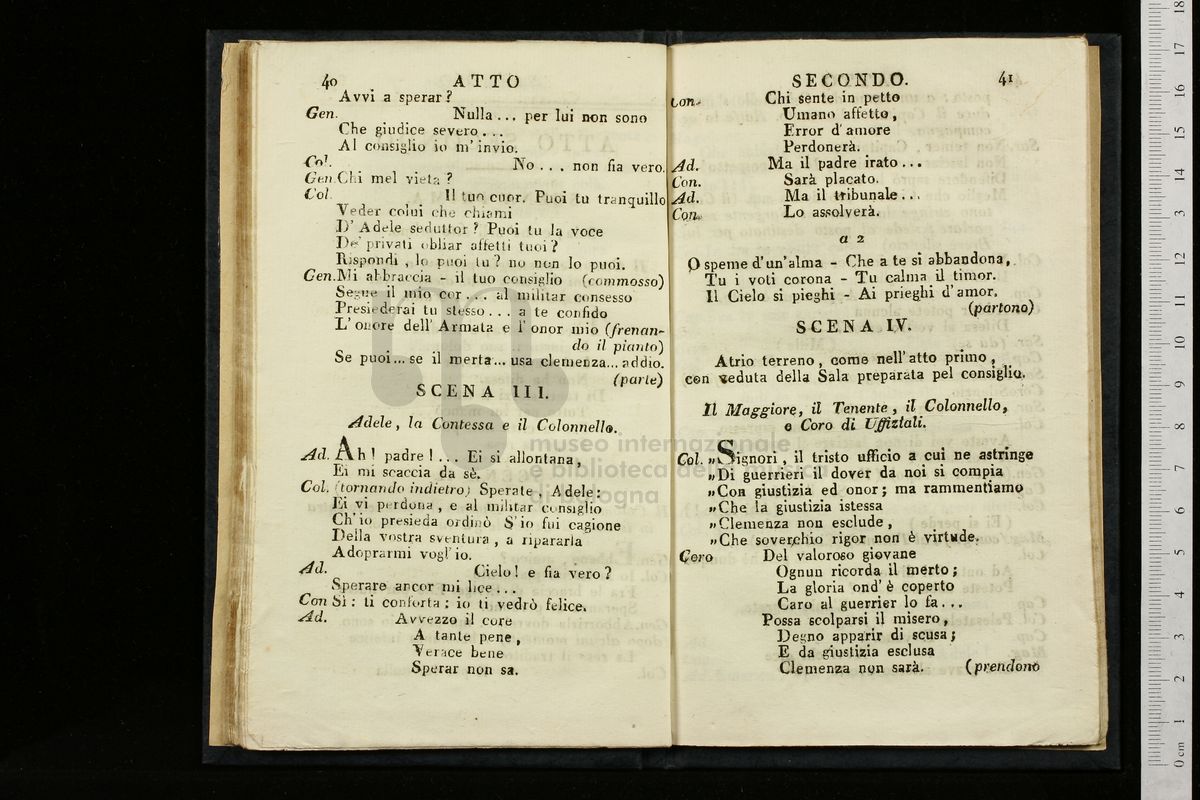 40 ATTO
Avvi a sperar?
Gen. Nulla ... per lui non sono
Che giudice severo ...
Al consiglio io m' invio.
Col. No ... non fia vero.
Gen. Chi mel vieta ?
Col. Il tuo cuor. Puoi tu tranquillo
Veder colui che chiami
D' Adele seduttor? Puoi tu la voce
De' privati obliar affetti tuoi?
Rispondi , lo puoi tu? no non lo puoi.
Gen. Mi abbraccia - il tuo consiglio (commosso)
Segue il mio cor ... al militar consesso
Presiederai tu stesso ... a te confido
L' onore dell' Armata e l' onor mio (frenan-
do il pianto)
Se puoi ... se il merta ... usa clemenza ... addio.
(parte)
SCENA III.
Adele, la Contessa e il Colonnello.
Ad. Ah! padre! ... Ei si allontana,
Ei mi scaccia da sè.
Col. (tornando indietro) Sperate, Adele:
Ei vi perdona, e al militar consiglio
Ch' io presieda ordinò S' io fui cagione
Della vostra sventura, a ripararla
Adoprarmi vogl' io.
Ad. Cielo! e fia vero?
Sperare ancor mi lice ...
Con Si: ti conforta: io ti vedrò felice.
Ad. Avvezzo il core
A tante pene,
Verace bene
Sperar non sa.
SECONDO. 41
Con. Chi sente in petto
Umano affetto,
Error d' amore
Perdonerà.
Ad. Ma il padre irato ...
Con. Sarà placato.
Ad. Ma il tribunale ...
Con. Lo assolverà.
a 2
O speme d'un'alma - Che a te si abbandona,
Tu i voti corona - Tu calma il timor.
Il Cielo si pieghi - Ai prieghi d'amor.
(partono)
SCENA IV.
Atrio terreno, come nell'atto primo,
con veduta della Sala preparata pel consiglio.
Il Maggiore, il Tenente, il Colonnello,
e Coro di Uffiziali.
Col. „Signori, il tristo ufficio a cui ne astringe
„Di guerrieri il dover da noi si compia
„Con giustizia ed onor; ma rammentiamo
„Che la giustizia istessa
„Clemenza non esclude,
„Che soverchio rigor non è virtude.
Coro Del valoroso giovane
Ognun ricorda il merto;
La gloria ond' è coperto
Caro al guerrier lo fa ...
Possa scolparsi il misero,
Degno apparir di scusa;
E da giustizia esclusa
Clemenza non sarà. (prendono
museo internazionale
e biblioteca della musica
di bologna
0 cm 1 2 3 4 5 6 7 8 9 10 11 12 13 14 15 16 17 18